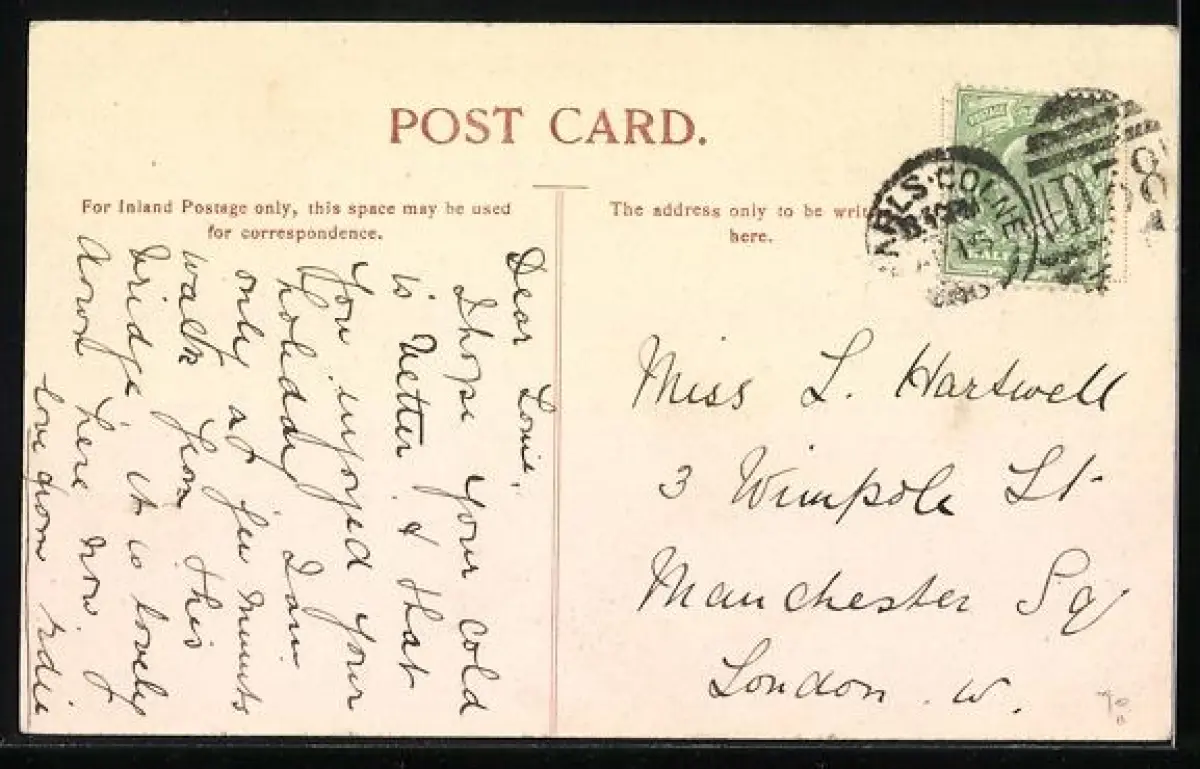 POST CARD.
For Inland Postage only, this space may be used
for correspondence.
The address only to be writ
here.
ARLS·COLNE
D38
Dear Louie,
I hope your cold
is better & that
you injoyed your
holiday I am
only a few minuts
walk from this
bridge it is lovely
here now
love from
Miss L. Hartwell
3 Wimpole St
Manchester Sq
London . W.